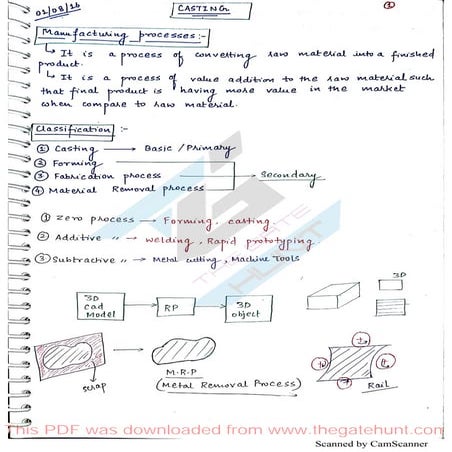 01/08/16
CASTING
1
Manufacturing processes:-
↳ It is a process of converting raw material into a finished
product.
↳ It is a process of value addition to the raw material such
that final product is having more value in the market
when compare to raw material.
Classification :-
① Casting → Basic / Primary
② Forming
③ Fabrication process → Secondary
④ Material Removal process
① Zero process → Forming, casting.
② Additive " → Welding, Rapid prototyping
③ Subtractive " → Metal cutting, Machine Tools
3D
3D
cad
Model
RP
3D
object
scrap
M.R.P
(Metal Removal Process)
Rail
THE GATE
HUNT
This PDF was downloaded from www.thegatehunt.com
Scanned by CamScanner